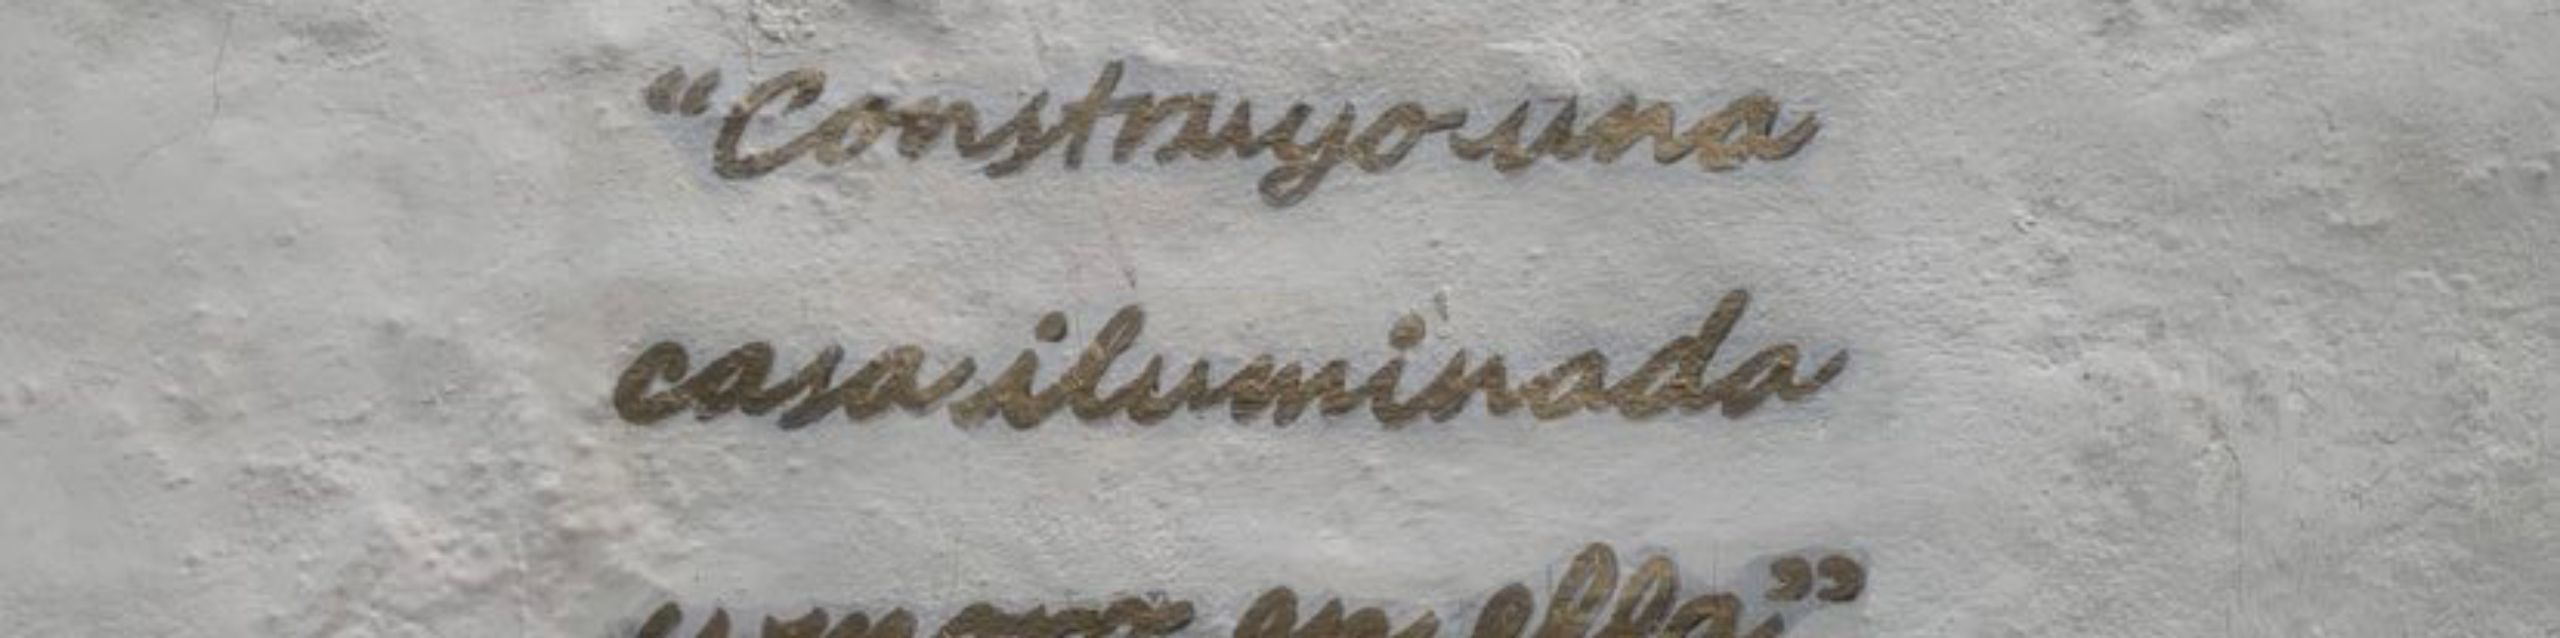 “Construyo una
casa iluminada
en ella”